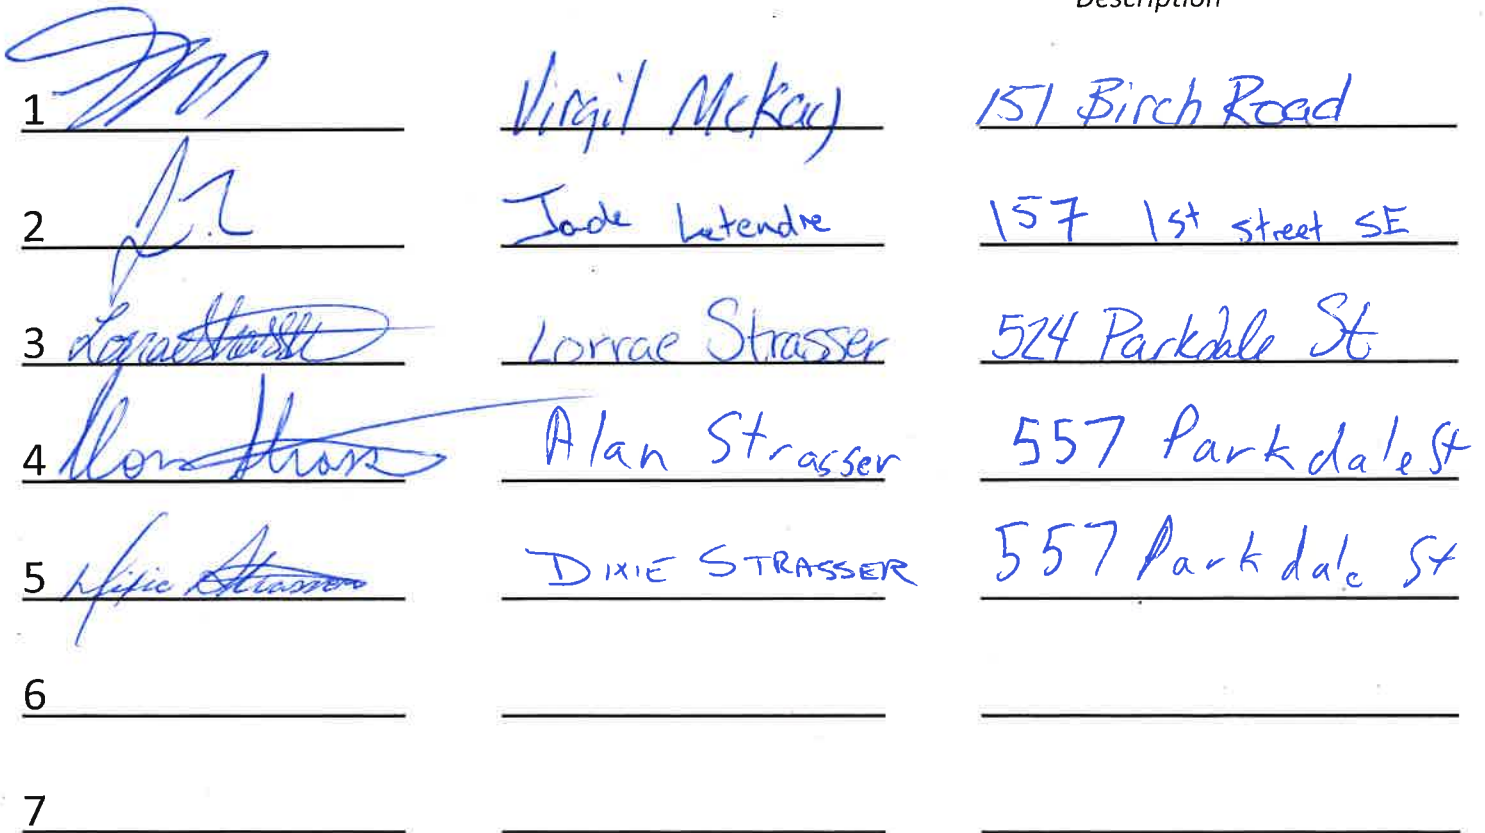 Description
1 Virgil McKay 151 Birch Road
2 J.L Jade Letendre 157 1st street SE
3 Lorrae Strasser Lorrae Strasser 524 Parkdale St
4 Alan Strasser 557 Parkdale St
5 Dixie Strasser DIXIE STRASSER 557 Parkdale St
6
7